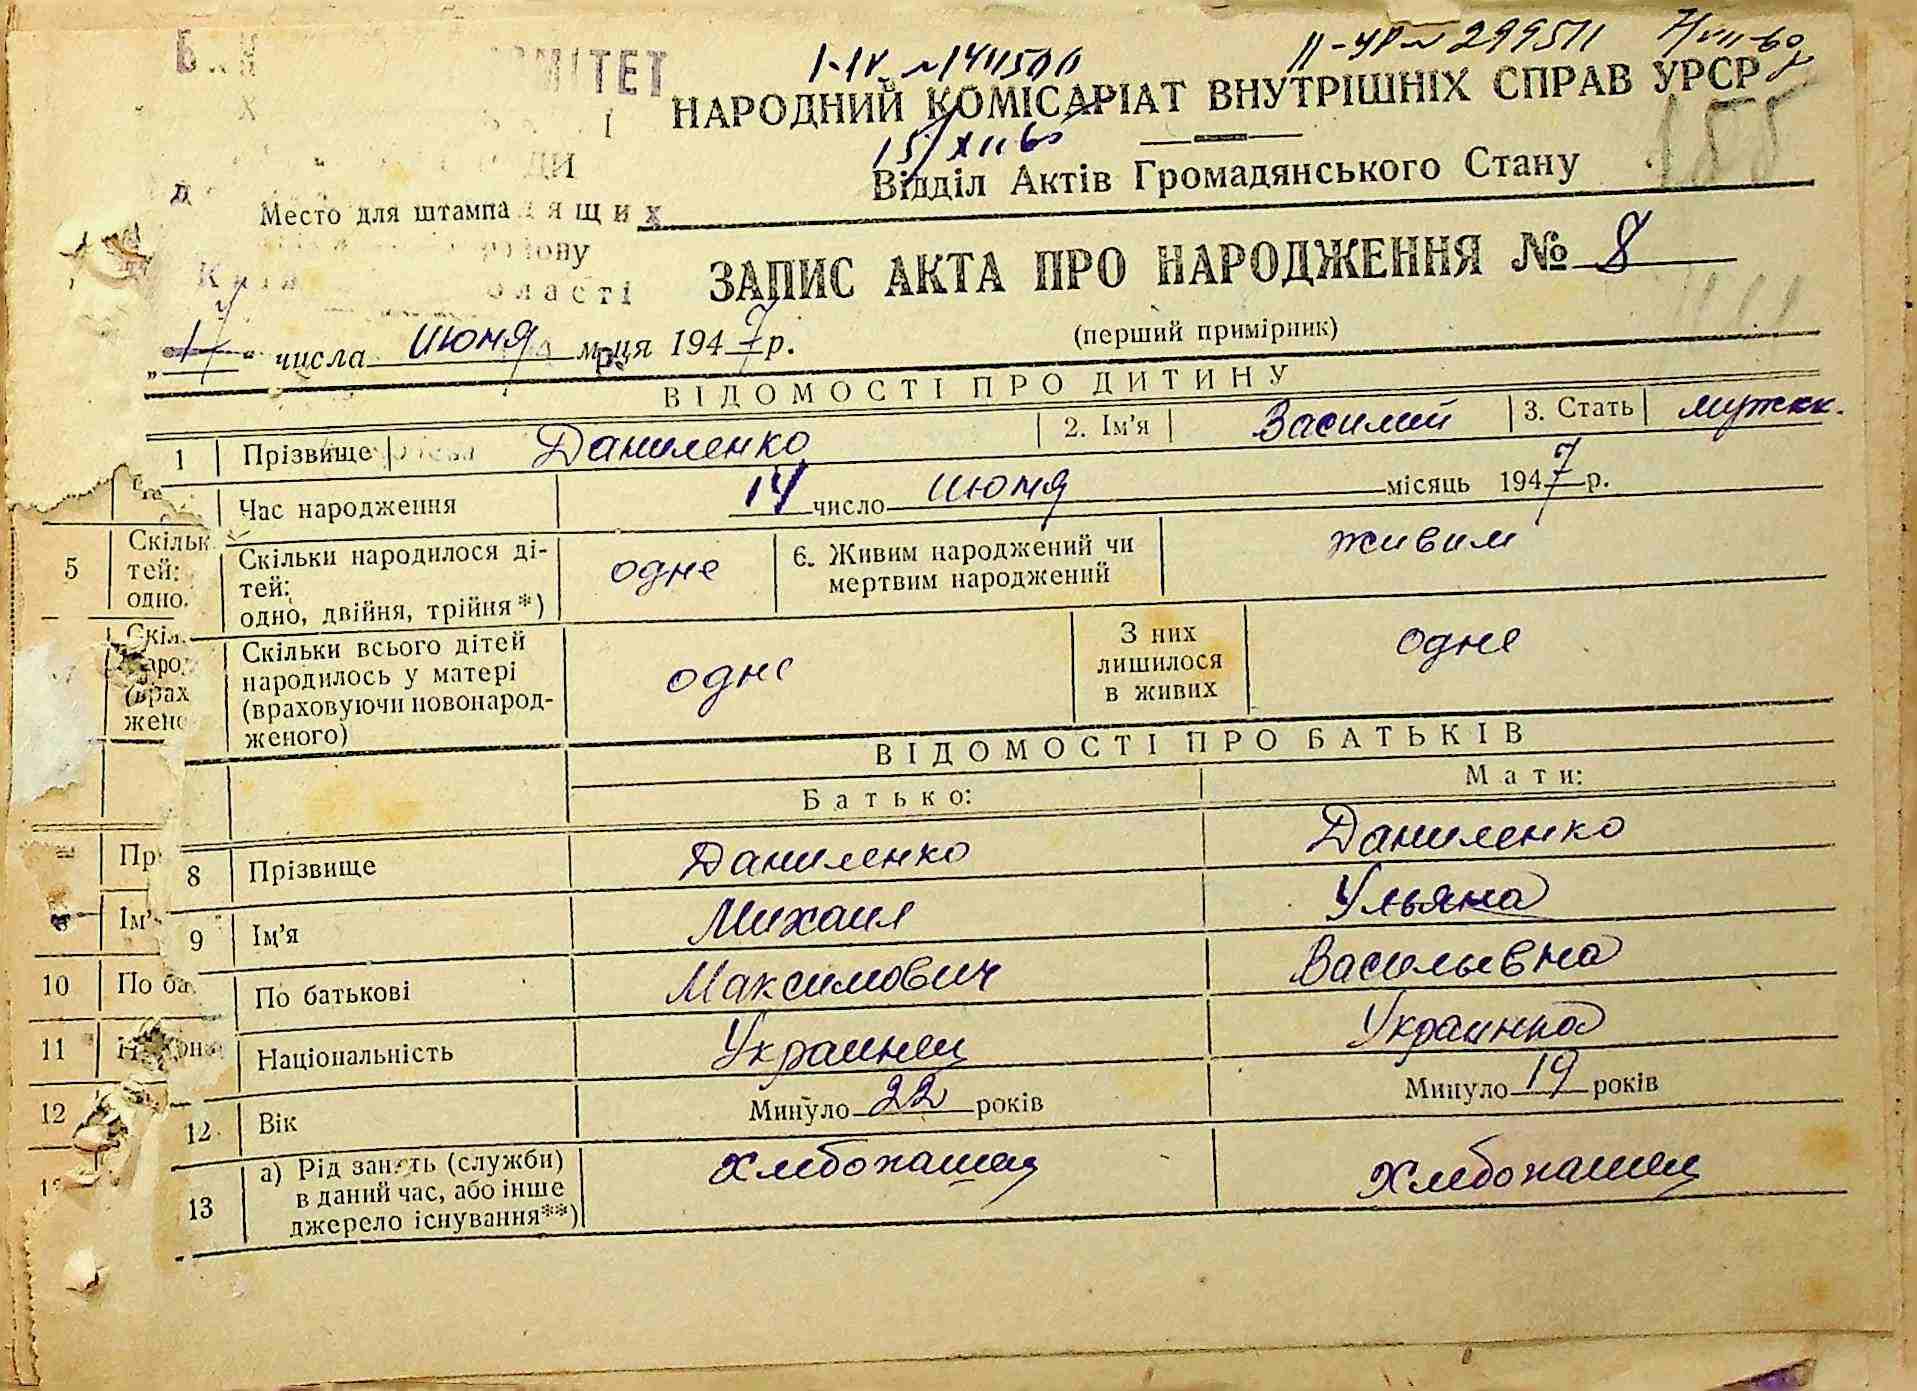 І-ІУ №
ІІ-УР № 299511
НАРОДНИЙ КОМІСАРІАТ ВНУТРІШНІХ СПРАВ УРСР
15/XII 60
155
Відділ Актів Громадянського Стану
Место для штампа
ЗАПИС АКТА ПРО НАРОДЖЕННЯ № 8
області
числа июня м-ця 1947 р.
(перший примірник)
ВІДОМОСТІ ПРО ДИТИНУ
1 Прізвище Даниленко 2. Ім'я Василий 3. Стать мужск.
Час народження 14 число июня місяць 1947 р.
5 Скільки народилося ді-
тей:
одно, двійня, трійня*) одне 6. Живим народжений чи
мертвим народжений живим
Скільки всього дітей
народилось у матері
(враховуючи новонарод-
женого) одне З них
лишилося
в живих одне
ВІДОМОСТІ ПРО БАТЬКІВ
Батько: Мати:
8 Прізвище Даниленко Даниленко
9 Ім'я Михаил Ульяна
10 По батькові Максимович Васильевна
11 Національність Украинец Украинка
12 Вік Минуло 22 років Минуло 19 років
13 а) Рід занять (служби)
в даний час, або інше
джерело існування**) Хлебопашец Хлебопашец